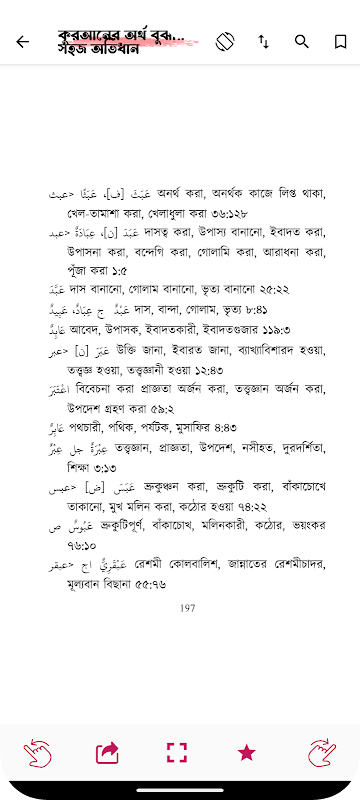 কুরআনের অর্থ বুঝ...
সহজ অভিধান
عبث> عَبَثَ [ف]، عَبَثًا অনর্থ করা, অনর্থক কাজে লিপ্ত থাকা,
খেল-তামাশা করা, খেলাধুলা করা ৩৬:১২৮
عبد> عَبَدَ [ن]، عِبَادَةٌ দাসত্ব করা, উপাস্য বানানো, ইবাদত করা,
উপাসনা করা, বন্দেগি করা, গোলামি করা, আরাধনা করা,
পূঁজা করা ১:৫
عَبَّدَ দাস বানানো, গোলাম বানানো, ভৃত্য বানানো ২৫:২২
عَبْدٌ ج عِبَادٌ، عَبِيدٌ দাস, বান্দা, গোলাম, ভৃত্য ৮:৪১
عَابِدٌ আবেদ, উপাসক, ইবাদতকারী, ইবাদতগুজার ১১৯:৩
عبر> عَبَرَ [ن] উক্তি জানা, ইবারত জানা, ব্যাখ্যাবিশারদ হওয়া,
তত্ত্বজ্ঞ হওয়া, তত্ত্বজ্ঞানী হওয়া ১২:৪৩
اعْتَبَرَ বিবেচনা করা প্রাজ্ঞতা অর্জন করা, তত্ত্বজ্ঞান অর্জন করা,
উপদেশ গ্রহণ করা ৫৯:২
عَابِرٌ পথচারী, পথিক, পর্যটক, মুসাফির ৪:৪৩
عِبْرَةٌ جل عِبْرٌ তত্ত্বজ্ঞান, প্রাজ্ঞতা, উপদেশ, নসীহত, দুরদর্শিতা,
শিক্ষা ৩:১৩
عبس> عَبَسَ [ض] ভ্রুকুঞ্চন করা, ভ্রুকুটি করা, বাঁকাচোখে
তাকানো, মুখ মলিন করা, কঠোর হওয়া ৭৪:২২
عَبُوسٌ ص ভ্রুকুটিপূর্ণ, বাঁকাচোখ, মলিনকারী, কঠোর, ভয়ংকর
৭৬:১০
عبقر> عَبْقَرِيٌّ اج রেশমী কোলবালিশ, জান্নাতের রেশমীচাদর,
মূল্যবান বিছানা ৫৫:৭৬
197